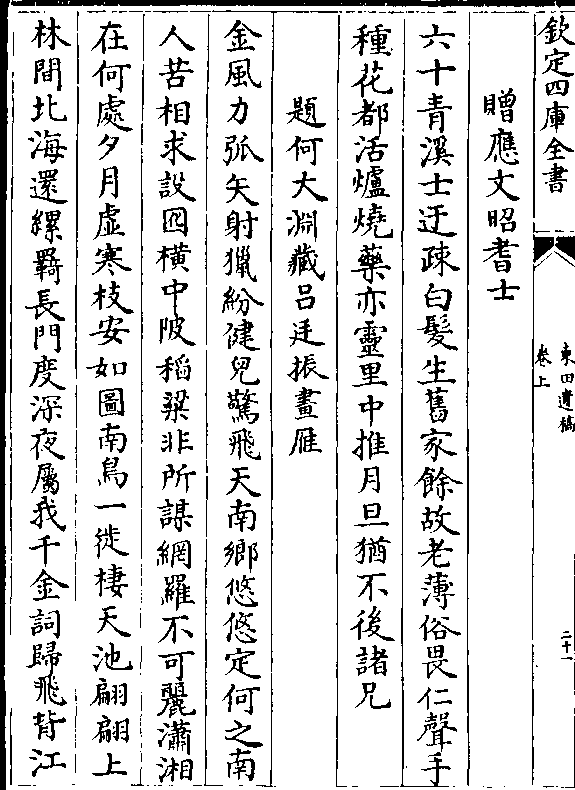 欽定四庫全書
東田遺稿
卷上
二十一
贈應文昭耆士
六十青溪士迂疎白髮生舊家餘故老薄俗畏仁聲手
種花都活爐燒藥亦靈里中推月旦猶不後諸兄
題何大淵藏吕廷振畫雁
金風力弧矢射獵紛健兒驚飛天南鄉悠悠定何之南
人苦相求設囮橫中陂稻粱非所謀網羅不可麗瀟湘
在何處夕月虛寒枝安如圖南鳥一徙棲天池翩翩上
林間北海還縲羇長門度深夜屬我千金詞歸飛背江